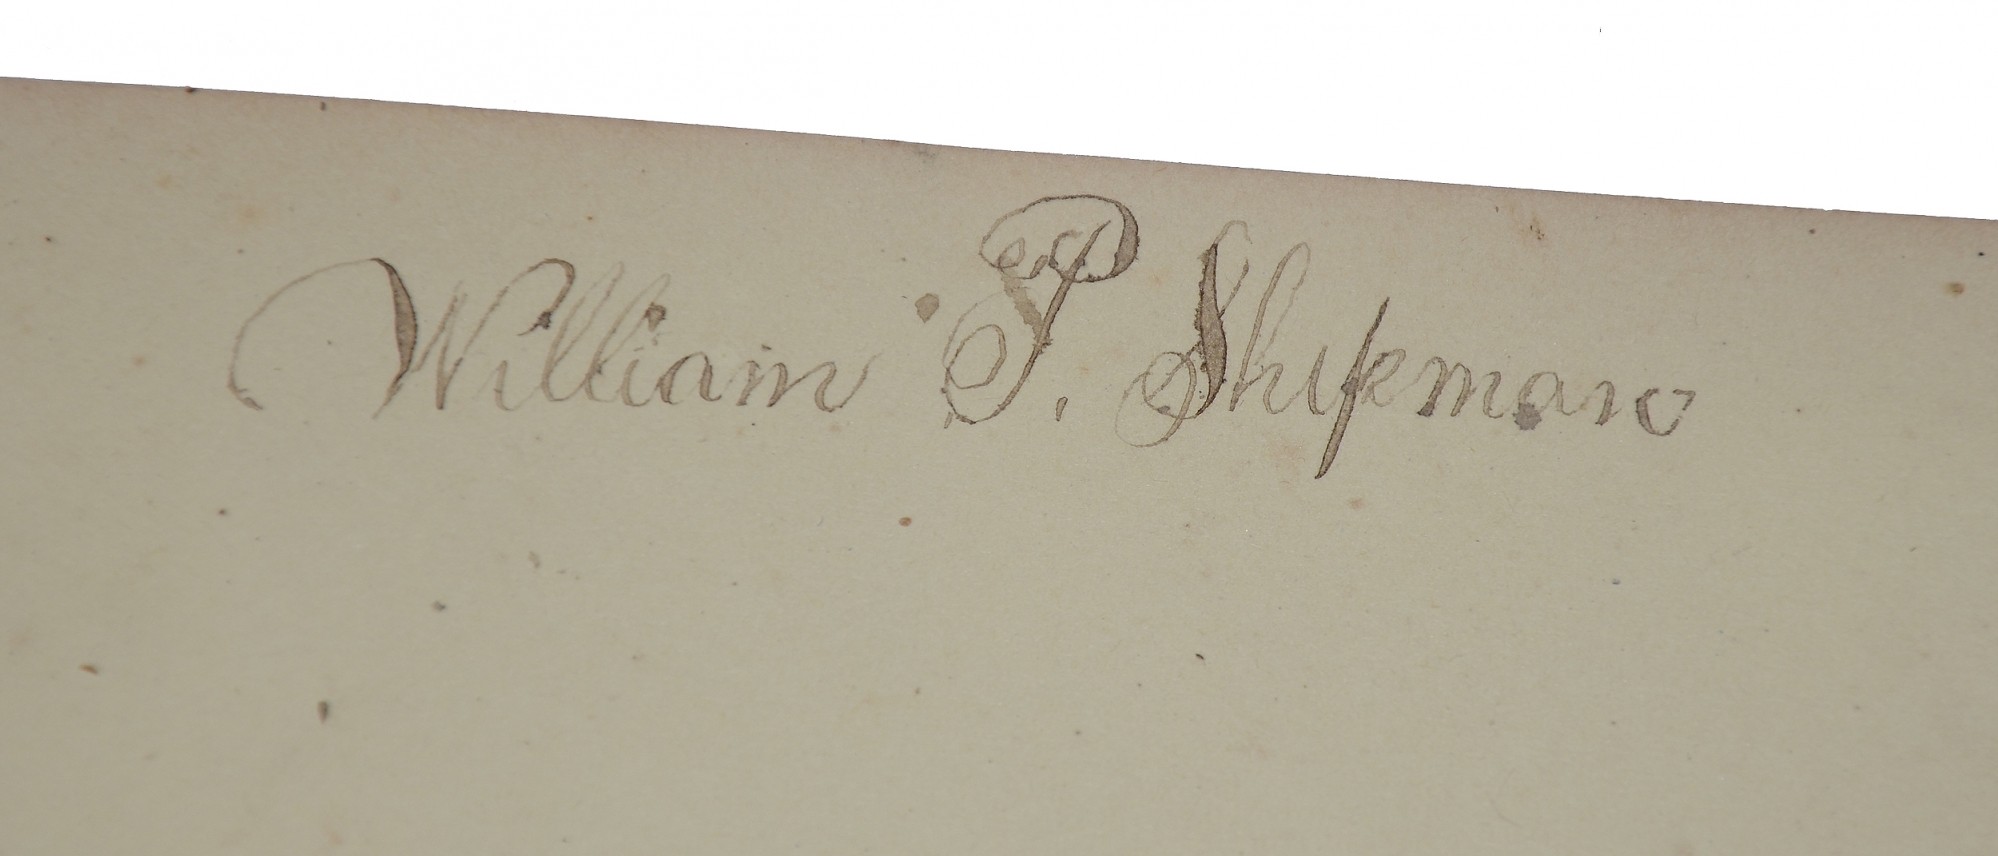 William P. Shipman